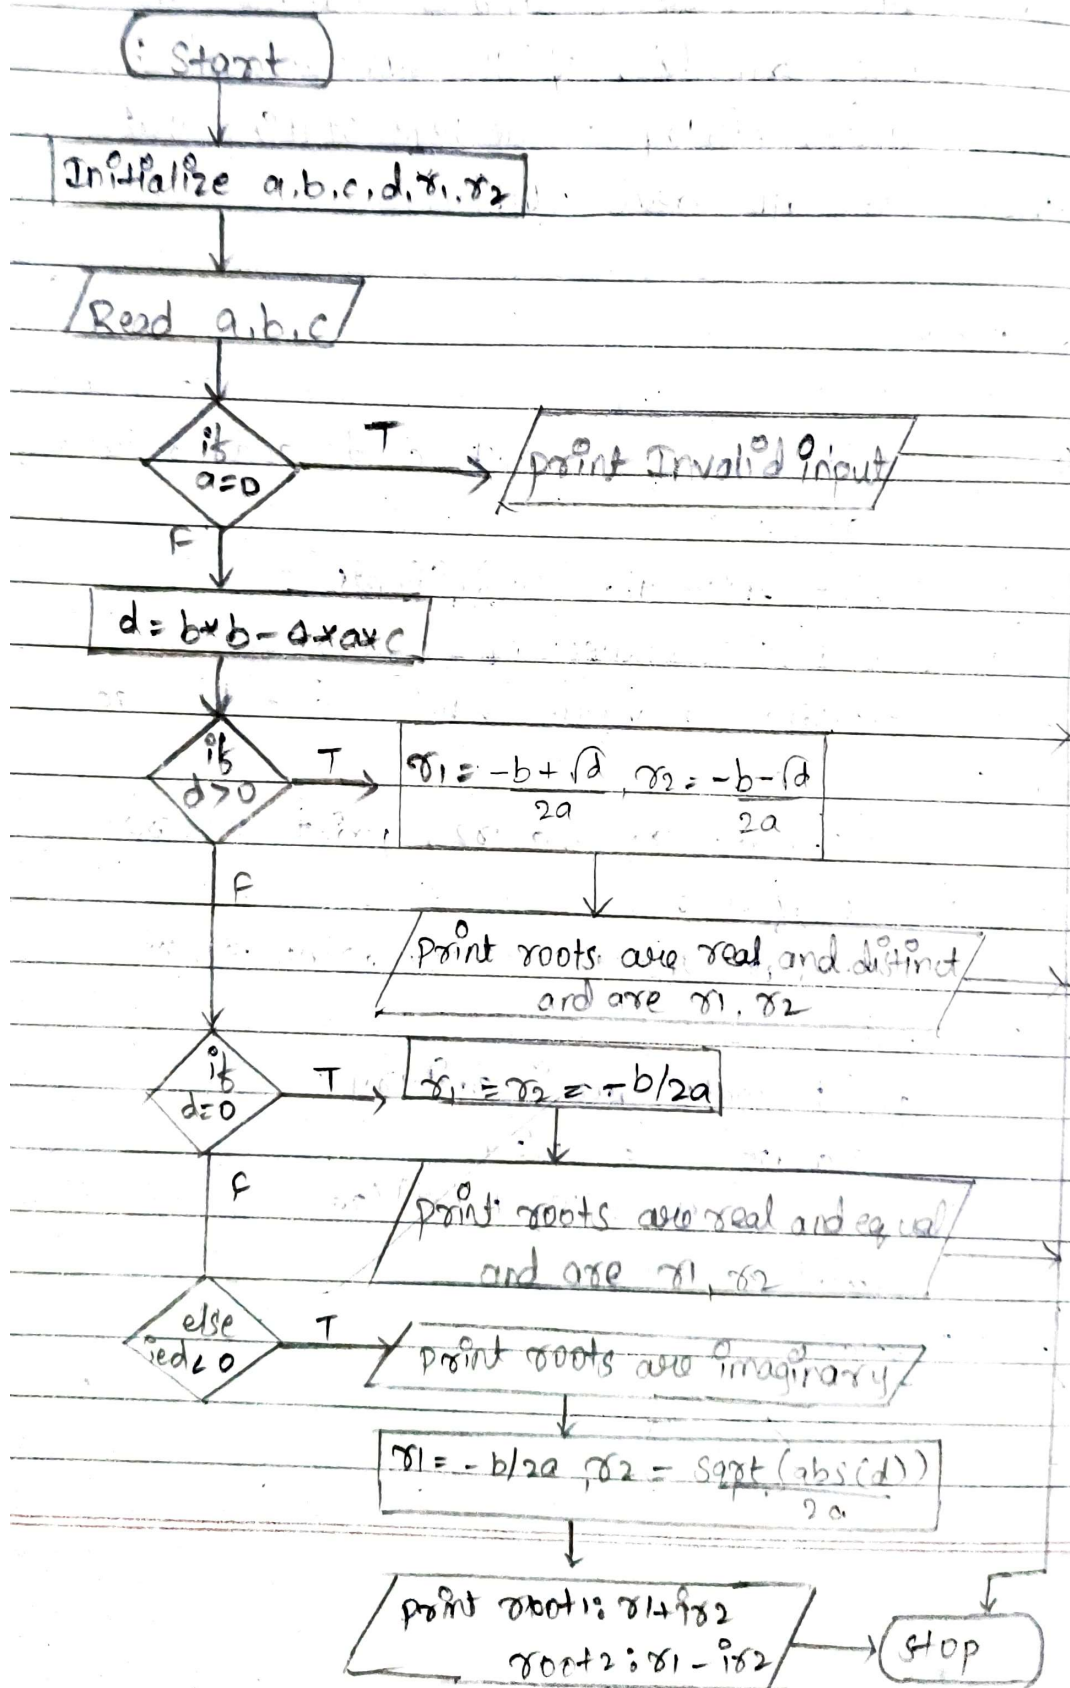 Start
Initialize a,b,c,d,r1,r2
Read a,b,c
if T
a=0 print Invalid input
F
d=b*b-4*a*c
if T r1= -b+√d/2a, r2= -b-√d/2a
d>0
F
print roots are real and distinct
and are r1, r2
if T r1=r2=-b/2a
d=0
F
print roots are real and equal
and are r1, r2
else T
ied<0 print roots are imaginary
r1=-b/2a, r2= sqrt(abs(d))/2a
print root1: r1+ir2
root2: r1-ir2
stop